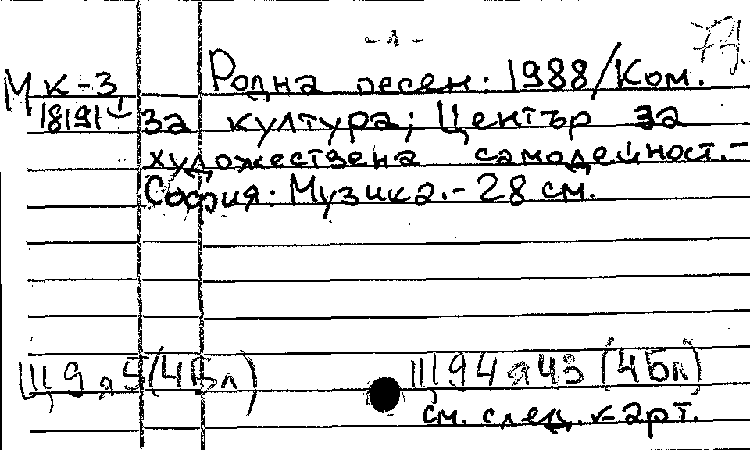 - 1 -
74.
МК-3 Родна песен: 1988/Ком.
18191 за култура; Център за
художествена самодейност.-
София: Музика.- 28 см.
Щ9я5(4Бл) Щ94я43(4Бл)
см. след. карт.